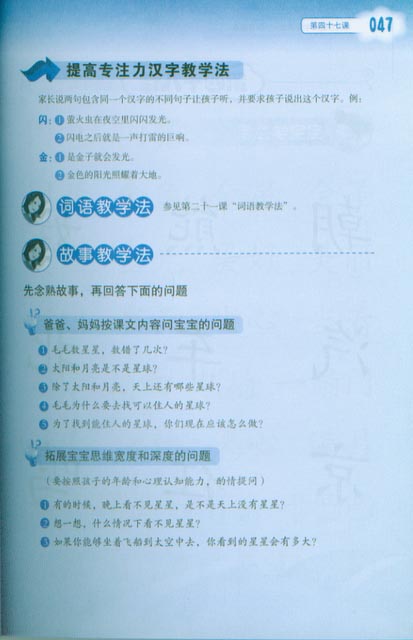 第四十七课 047
提高专注力汉字教学法
家长说两句包含同一个汉字的不同句子让孩子听，并要求孩子说出这个汉字。例：
闪：①萤火虫在夜空里闪闪发光。
②闪电之后就是一声打雷的巨响。
金：①是金子就会发光。
②金色的阳光照耀着大地。
词语教学法 参见第二十一课“词语教学法”。
故事教学法
先念熟故事，再回答下面的问题
爸爸、妈妈按课文内容问宝宝的问题
①毛毛数星星，数错了几次？
②太阳和月亮是不是星球？
③除了太阳和月亮，天上还有哪些星球？
④毛毛为什么要去找可以住人的星球？
⑤为了找到能住人的星球，你们现在应该怎么做？
拓展宝宝思维宽度和深度的问题
（要按照孩子的年龄和心理认知能力，酌情提问）
①有的时候，晚上看不见星星，是不是天上没有星星？
②想一想，什么情况下看不见星星？
③如果你能够坐着飞船到太空中去，你看到的星星会有多大？